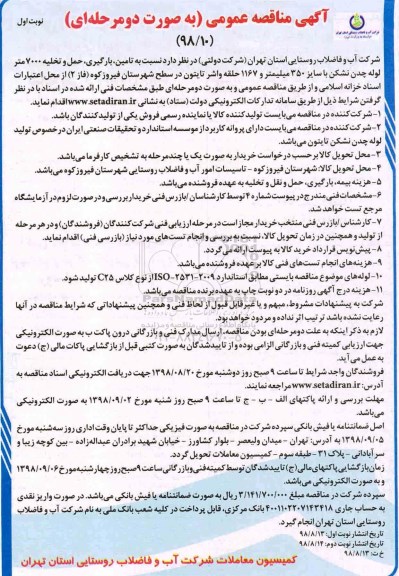 آگهی مناقصه عمومی (به صورت دومرحله‌ای)
نوبت اول
(۹۸/۱۰)
شرکت آب و فاضلاب روستایی استان تهران (شرکت دولتی) در نظر دارد نسبت به تامین، بارگیری، حمل و تخلیه ۷۰۰۰ متر
لوله چدن نشکن با سایز ۳۵۰ میلیمتر و ۱۱۶۷ حلقه واشر تایتون در سطح شهرستان فیروزکوه (فاز ۲) از محل اعتبارات
اسناد خزانه اسلامی و از طریق مناقصه عمومی و به صورت دومرحله‌ای طبق مشخصات فنی ارائه شده در اسناد با در نظر
گرفتن شرایط ذیل از طریق سامانه تدارکات الکترونیکی دولت (ستاد) به نشانی www.setadiran.ir اقدام نماید.
۱- شرکت‌کننده در مناقصه می‌بایست تولیدکننده کالا یا نماینده رسمی فروش یکی از تولیدکنندگان باشد.
۲- شرکت‌کننده در مناقصه می‌بایست دارای پروانه کاربرد از موسسه استاندارد و تحقیقات صنعتی ایران در خصوص تولید
لوله چدن نشکن تایتون می‌باشد.
۳- محل تحویل کالا بر حسب درخواست خریدار به صورت یک یا چند مرحله به تشخیص کارفرما می‌باشد.
۴- محل تحویل کالا: شهرستان فیروزکوه - تاسیسات امور آب و فاضلاب روستایی شهرستان فیروزکوه می‌باشد.
۵- هزینه بیمه، بارگیری، حمل و نقل و تخلیه به عهده فروشنده می‌باشد.
۶- مشخصات فنی مندرج در پیوست شماره ۴ توسط کارشناسان بازرس فنی خریدار بررسی و در صورت لزوم در آزمایشگاه
مرجع تست خواهد شد.
۷- کارشناس/بازرس فنی منتخب خریدار مجاز است در مرحله ارزیابی فنی شرکت‌کنندگان (فروشندگان) و در هر مرحله
از تولید و همچنین در زمان تحویل کالا، نسبت به بررسی و انجام تست‌های مورد نیاز (بازرسی فنی) اقدام نماید.
۸- پیش‌نویس قرارداد خرید کالا به پیوست ارائه می‌گردد.
۹- هزینه‌های انجام تست‌های فنی کالا بر عهده فروشنده می‌باشد.
۱۰- لوله‌های موضوع مناقصه بایستی مطابق استاندارد ISO-۲۵۳۱-۲۰۰۹ از نوع کلاس C۲۵ تولید شود.
۱۱- هزینه درج آگهی روزنامه در دو نوبت چاپ به عهده برنده مناقصه می‌باشد.
شرکت به پیشنهادات مشروط، مبهم و یا غیر قابل قبول از لحاظ فنی و همچنین پیشنهاداتی که شرایط مناقصه در آنها
رعایت نشده باشد ترتیب اثر نداده و مردود خواهد بود.
لازم به ذکر اینکه به علت دومرحله‌ای بودن مناقصه، ارسال مدارک فنی و بازرگانی درون پاکت ب به صورت الکترونیکی
جهت ارزیابی کمیته فنی و بازرگانی الزامی بوده و از تاییدشدگان به صورت کتبی قبل از بازگشایی پاکات مالی (ج) دعوت
به عمل می‌آید.
فروشندگان واجد شرایط تا ساعت ۹ صبح روز دوشنبه مورخ ۱۳۹۸/۰۸/۲۰ جهت دریافت الکترونیکی اسناد مناقصه به
آدرس: www.setadiran.ir مراجعه نمایند.
مهلت بررسی و ارائه پاکتهای الف - ب - ج تا ساعت ۹ صبح شنبه مورخ ۱۳۹۸/۰۹/۰۲ به صورت الکترونیکی
می‌باشد.
اصل ضمانتنامه یا فیش بانکی سپرده شرکت در مناقصه به صورت فیزیکی حداکثر تا پایان وقت اداری روز سه‌شنبه مورخ
۱۳۹۸/۰۹/۰۵ به آدرس: تهران - میدان ولیعصر - بلوار کشاورز - خیابان شهید برادران عبدالله‌زاده - بین کوچه زیبا و
سرآبادانی - پلاک ۳۱ - طبقه سوم - کمیسیون معاملات تحویل گردد.
زمان بازگشایی پاکتهای مالی (ج) تاییدشدگان توسط کمیته فنی و بازرگانی ساعت ۹ صبح روز چهارشنبه مورخ ۱۳۹۸/۰۹/۰۶
و به صورت الکترونیکی می‌باشد.
سپرده شرکت در مناقصه مبلغ ۳/۱۴۱/۷۰۰/۰۰۰ ریال به صورت ضمانتنامه یا فیش بانکی می‌باشد. در صورت واریز نقدی
به حساب جاری ۴۰۰۱۱۰۲۲۰۷۱۴۳۴۱۸ بانک مرکزی، قابل پرداخت در کلیه شعب بانک ملی به نام شرکت آب و فاضلاب
روستایی استان تهران انجام گیرد.
تاریخ انتشار نوبت اول: ۱۳۹۸/۸/۱۳
تاریخ انتشار نوبت دوم: ۱۳۹۸/۸/۱۴
خ ت: ۱۳۹۸/۸/۱۳
کمیسیون معاملات شرکت آب و فاضلاب روستایی استان تهران